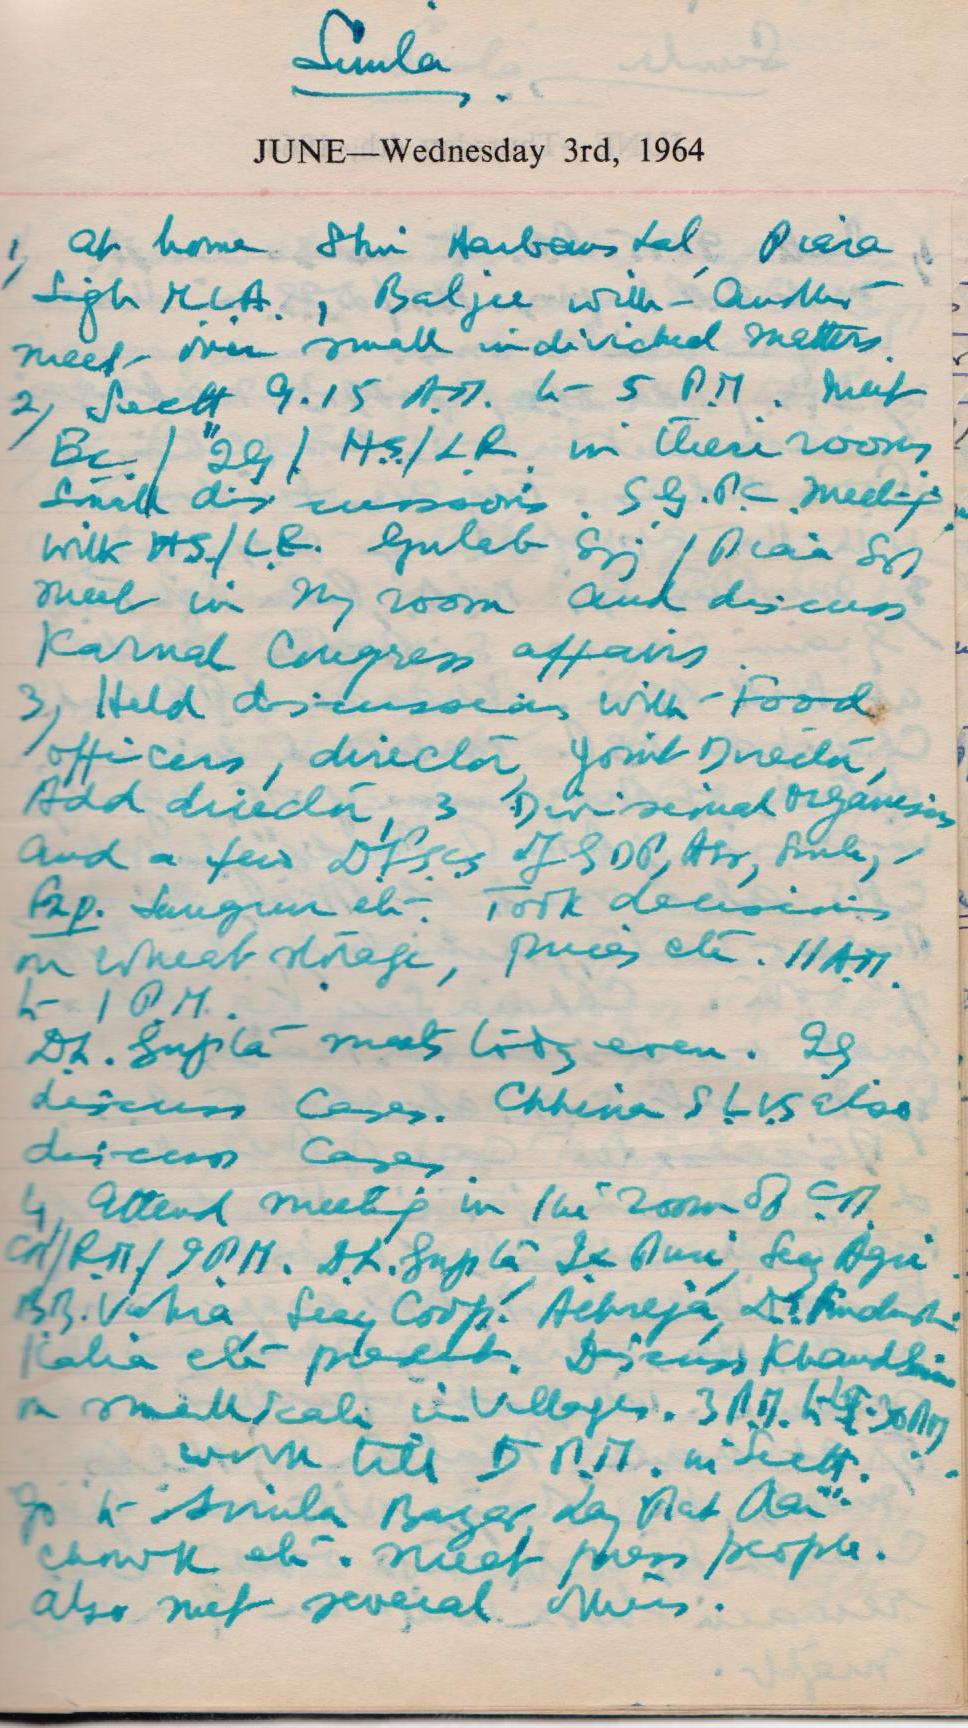 Simla
JUNE—Wednesday 3rd, 1964
1, At home Shri Harbans Lal, Piara
Singh M.L.A., Baljit with another
meet over small individual matters.
2, Sectt 9.15 A.M. to 5 P.M. Meet
/ IG / H.S./L.R. in their rooms
Small discussions. S.G.P.C Meeting
with HS./L.R. Gulab Sgj / Piara Sgj
meet in my room and discuss
Karnal Congress affairs.
3, Held discussions with Food
officers, director, Joint Director,
Add director, 3 Divisional Organisers
and a few D.F.S.Cs of GDP, Asr, Simla,
Fzp. Sangrur etc. Took decisions
on wheat storage, prices etc. 11 A.M.
to 1 P.M.
Dr. Gupta meets today even. IG
discuss cases. Chhina also
discuss cases
4, Attend meeting in the room of C.M.
CM/R.M/ Dr. Gupta, Puri, Secy Agri.
B.B. Vohra Secy Coop. Achreja,
Kalia etc present. Discuss Khandsari
on small scale in villages. 3 P.M. to
work till 5 P.M. in Sectt.
Go to Simla Bazar, Laj Pat Rai
chowk etc. meet press people.
also met several others.